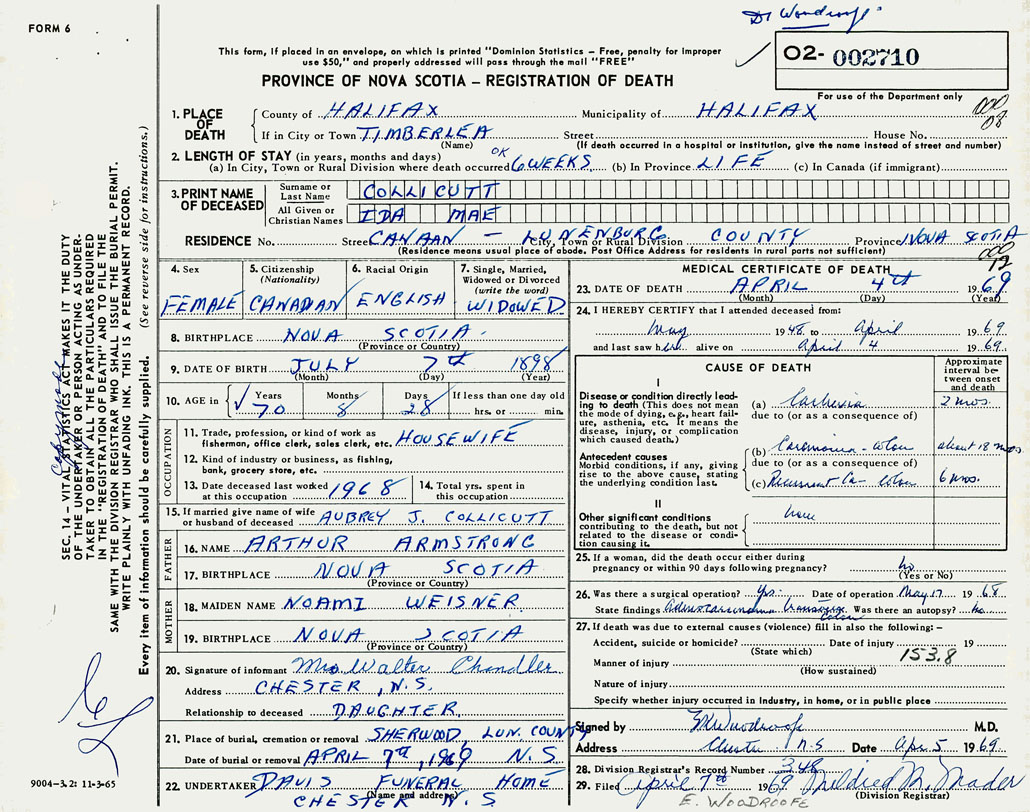 Dr Woodroofe
FORM 6
This form, if placed in an envelope, on which is printed "Dominion Statistics – Free, penalty for improper
use $50," and properly addressed will pass through the mail "FREE"
PROVINCE OF NOVA SCOTIA – REGISTRATION OF DEATH
02- 002710
For use of the Department only
1. PLACE OF DEATH County of HALIFAX Municipality of HALIFAX
000 08
If in City or Town TIMBERLEA Street House No.
(Name) (If death occurred in a hospital or institution, give the name instead of street and number)
2. LENGTH OF STAY (in years, months and days) OK
(a) In City, Town or Rural Division where death occurred 6 WEEKS (b) In Province LIFE (c) In Canada (if immigrant)
3. PRINT NAME OF DECEASED Surname or Last Name COLLICUTT
All Given or Christian Names IDA MAE
RESIDENCE No. Street CANAAN – LUNENBURG COUNTY City, Town or Rural Division Province NOVA SCOTIA
(Residence means usual place of abode. Post Office Address for residents in rural parts not sufficient)
000 12
4. Sex FEMALE
5. Citizenship (Nationality) CANADIAN
6. Racial Origin ENGLISH
7. Single, Married, Widowed or Divorced (write the word) WIDOWED
8. BIRTHPLACE NOVA SCOTIA
(Province or Country)
9. DATE OF BIRTH JULY 7th 1898
(Month) (Day) (Year)
10. AGE in Years 70 Months 8 Days 28 If less than one day old hrs. or min.
OCCUPATION
11. Trade, profession, or kind of work as fisherman, office clerk, sales clerk, etc. HOUSEWIFE
12. Kind of industry or business, as fishing, bank, grocery store, etc.
13. Date deceased last worked at this occupation 1968 14. Total yrs. spent in this occupation
15. If married give name of wife or husband of deceased AUBREY J. COLLICUTT
FATHER
16. NAME ARTHUR ARMSTRONG
17. BIRTHPLACE NOVA SCOTIA
(Province or Country)
MOTHER
18. MAIDEN NAME NOAMI WEISNER
19. BIRTHPLACE NOVA SCOTIA
(Province or Country)
20. Signature of informant Mrs Walter Chandler
Address CHESTER, N.S.
Relationship to deceased DAUGHTER
21. Place of burial, cremation or removal SHERWOOD, LUN. COUNTY
Date of burial or removal APRIL 7th, 1969 N.S.
22. UNDERTAKER DAVIS FUNERAL HOME
(Name and address)
CHESTER N.S.
MEDICAL CERTIFICATE OF DEATH
23. DATE OF DEATH APRIL 4th 1969
(Month) (Day) (Year)
24. I HEREBY CERTIFY that I attended deceased from:
May 1948 to April 1969
and last saw her alive on April 4 1969
CAUSE OF DEATH
Approximate interval between onset and death
I
Disease or condition directly leading to death (This does not mean the mode of dying, e.g., heart failure, asthenia, etc. It means the disease, injury, or complication which caused death.)
(a) Cachexia 2 mos.
due to (or as a consequence of)
Antecedent causes
Morbid conditions, if any, giving rise to the above cause, stating the underlying condition last.
(b) Carcinoma - colon about 18 mos.
due to (or as a consequence of)
(c) Recurrent Ca - colon 6 mos.
II
Other significant conditions contributing to the death, but not related to the disease or condition causing it.
none
25. If a woman, did the death occur either during pregnancy or within 90 days following pregnancy? no
(Yes or No)
26. Was there a surgical operation? Yes. Date of operation May 17 1968
State findings Adenocarcinoma transverse colon Was there an autopsy? no
27. If death was due to external causes (violence) fill in also the following: –
Accident, suicide or homicide? Date of injury 19
(State which) 153.8
Manner of injury
(How sustained)
Nature of injury
Specify whether injury occurred in Industry, in home, or in public place
Signed by Woodroofe M.D.
Address Chester N S Date Apr. 5 1969
28. Division Registrar's Record Number 348
29. Filed April 7th 1969 Mildred M. Meader
(Division Registrar)
E. WOODROOFE
SEC. 14 – VITAL STATISTICS ACT MAKES IT THE DUTY
OF THE UNDERTAKER OR PERSON ACTING AS UNDER-
TAKER TO OBTAIN ALL THE PARTICULARS REQUIRED
IN THE "REGISTRATION OF DEATH" AND TO FILE THE
SAME WITH THE DIVISION REGISTRAR WHO SHALL ISSUE THE BURIAL PERMIT.
WRITE PLAINLY WITH UNFADING INK. THIS IS A PERMANENT RECORD.
Every item of information should be carefully supplied. (See reverse side for instructions.)
9004-3.2: 11-3-65